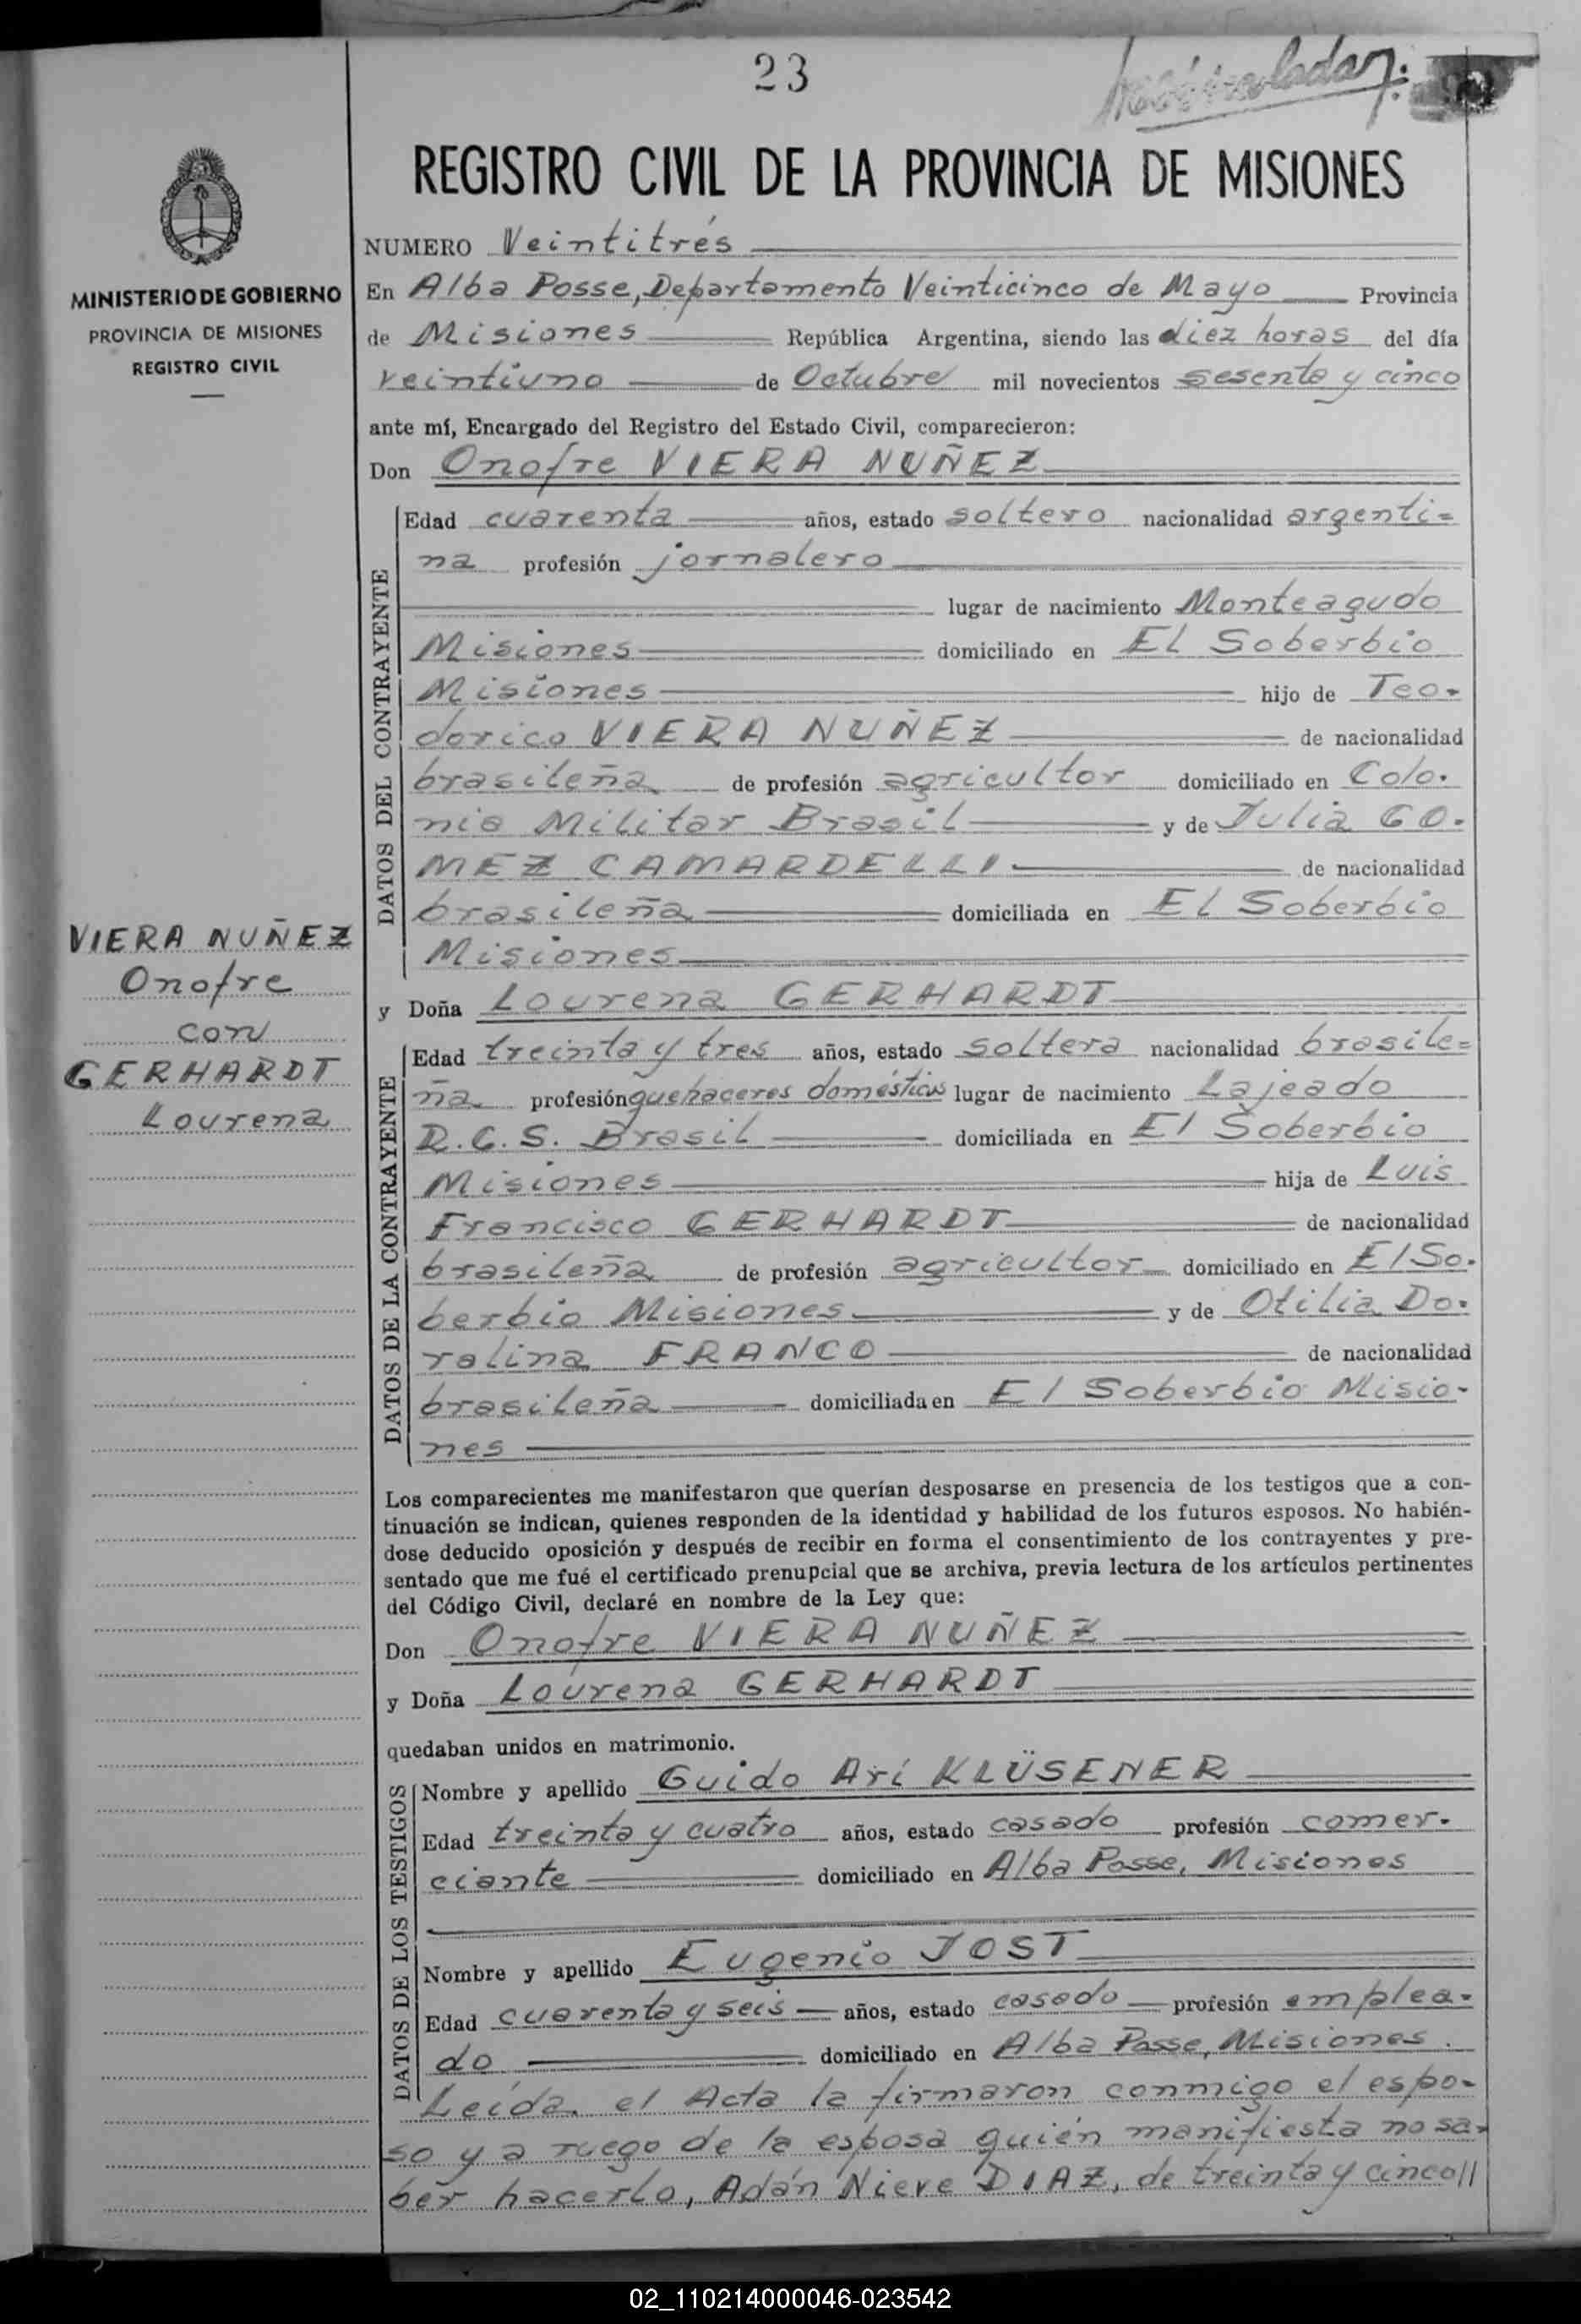 23
REGISTRO CIVIL DE LA PROVINCIA DE MISIONES
MINISTERIO DE GOBIERNO
PROVINCIA DE MISIONES
REGISTRO CIVIL
VIERA NUÑEZ
Onofre
con
GERHARDT
Lourena
NUMERO Veintitrés
En Alba Posse, Departamento Veinticinco de Mayo Provincia
de Misiones República Argentina, siendo las diez horas del día
veintiuno de Octubre mil novecientos sesenta y cinco
ante mí, Encargado del Registro del Estado Civil, comparecieron:
Don Onofre VIERA NUÑEZ
DATOS DEL CONTRAYENTE
Edad cuarenta años, estado soltero nacionalidad argenti=
na profesión jornalero
lugar de nacimiento Monteagudo
Misiones domiciliado en El Soberbio
Misiones hijo de Teo-
dorico VIERA NUÑEZ de nacionalidad
brasileña de profesión agricultor domiciliado en Colo-
nia Militar Brasil y de Julia GO-
MEZ CAMARDELLI de nacionalidad
brasileña domiciliada en El Soberbio
Misiones
y Doña Lourena GERHARDT
DATOS DE LA CONTRAYENTE
Edad treinta y tres años, estado soltera nacionalidad brasile=
ña profesión quehaceres domésticos lugar de nacimiento Lajeado
R.G.S. Brasil domiciliada en El Soberbio
Misiones hija de Luis
Francisco GERHARDT de nacionalidad
brasileña de profesión agricultor domiciliado en El So-
berbio Misiones y de Otilia Do-
ralina FRANCO de nacionalidad
brasileña domiciliada en El Soberbio Misio-
nes
Los comparecientes me manifestaron que querían desposarse en presencia de los testigos que a con-
tinuación se indican, quienes responden de la identidad y habilidad de los futuros esposos. No habién-
dose deducido oposición y después de recibir en forma el consentimiento de los contrayentes y pre-
sentado que me fué el certificado prenupcial que se archiva, previa lectura de los artículos pertinentes
del Código Civil, declaré en nombre de la Ley que:
Don Onofre VIERA NUÑEZ
y Doña Lourena GERHARDT
quedaban unidos en matrimonio.
DATOS DE LOS TESTIGOS
Nombre y apellido Guido Arí KLÜSENER
Edad treinta y cuatro años, estado casado profesión comer-
ciante domiciliado en Alba Posse, Misiones
Nombre y apellido Eugenio JOST
Edad cuarenta y seis años, estado casado profesión emplea-
do domiciliado en Alba Posse, Misiones.
Leída el Acta la firmaron conmigo el espo-
so y a ruego de la esposa quién manifiesta no sa-
ber hacerlo, Adán Nieve DIAZ, de treinta y cinco//
02_110214000046-023542